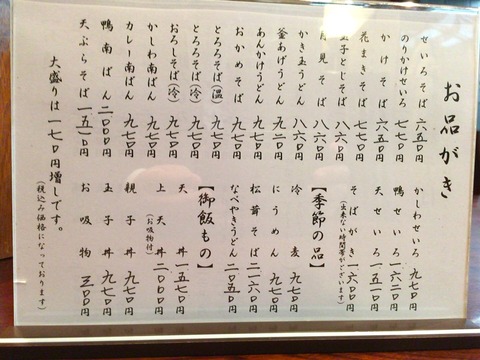 お品がき
せいろそば 六五〇円
のりかけせいろ 七七〇円
かけそば 六五〇円
花まきそば 七七〇円
玉子とじそば 八六〇円
月見そば 八六〇円
かき玉うどん 八六〇円
釜あげうどん 九二〇円
あんかけうどん 九七〇円
おかめそば 九七〇円
とろろそば(温) 九七〇円
とろろそば(冷) 九七〇円
おろしそば(冷) 九七〇円
かしわ南ばん 九七〇円
カレー南ばん 九七〇円
鴨南ばん 二〇〇〇円
天ぷらそば 一五一〇円
大盛りは一七〇円増しです。
(税込み価格になっております)
かしわせいろ 九七〇円
鴨せいろ 一六二〇円
天せいろ 一五一〇円
そばがき 一六〇〇円
(出来ない時間帯がございます)
【季節の品】
冷麦 九七〇円
にうめん 九七〇円
松茸そば 二一六〇円
なべやきうどん 二〇五〇円
【御飯もの】
天丼 一五七〇円
上天丼 二〇〇〇円
(お吸物付)
親子丼 九七〇円
玉子丼 九七〇円
お吸物 三〇〇円